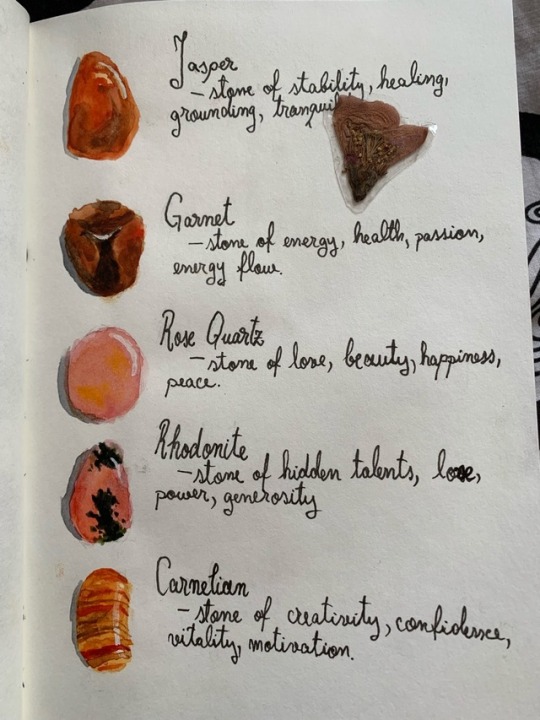 Jasper
- stone of stability, healing,
grounding,
Garnet
- stone of energy, health, passion,
energy flow.
Rose Quartz
- stone of love, beauty, happiness,
peace.
Rhodonite
- stone of hidden talents, love,
power, generosity
Carnelian
- stone of creativity, confidence,
vitality, motivation.